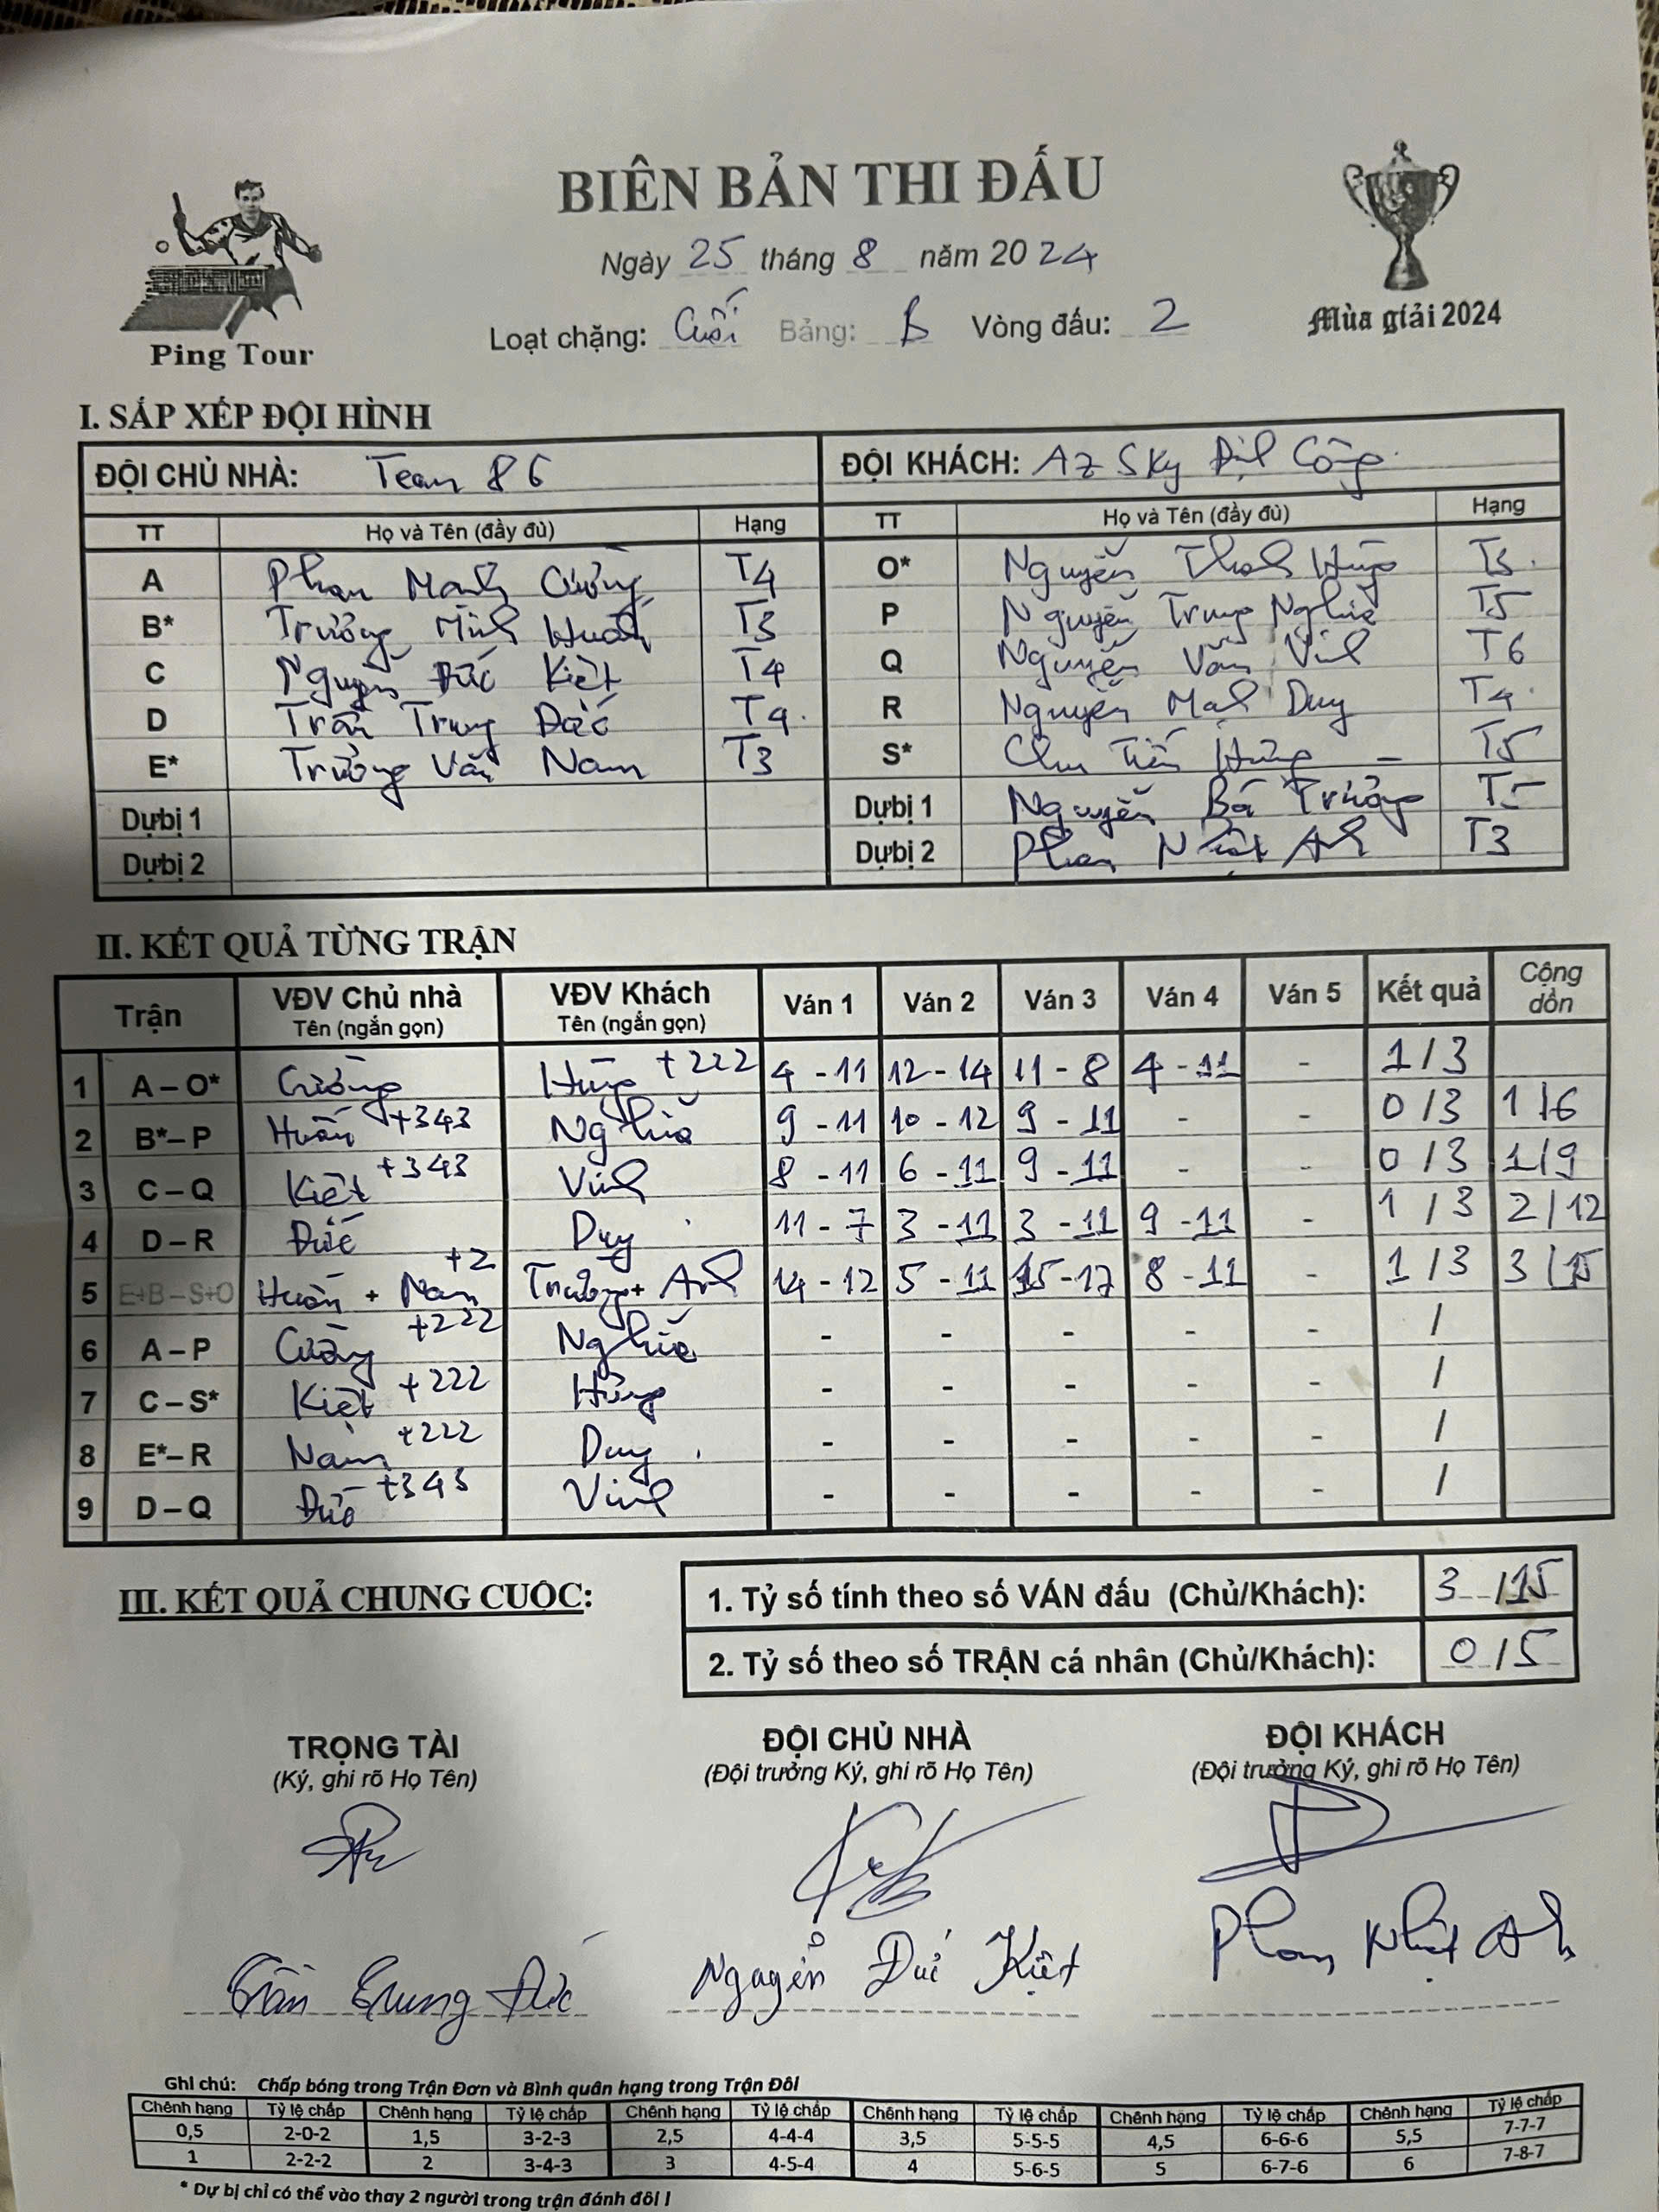 BIÊN BẢN THI ĐẤU
Ngày 25 tháng 8 năm 2024
Loạt chặng: Cuối Bảng: B Vòng đấu: 2
Ping Tour
Mùa giải 2024
I. SẮP XẾP ĐỘI HÌNH
ĐỘI CHỦ NHÀ: Team 86 ĐỘI KHÁCH: AZ Sky Định Công
TT Họ và Tên (đầy đủ) Hạng TT Họ và Tên (đầy đủ) Hạng
A Phan Mạnh Cường T4 O* Nguyễn Thanh Hùng T3
B* Trương Minh Huấn T3 P Nguyễn Trung Nghĩa T5
C Nguyễn Đức Kiệt T4 Q Nguyễn Văn Vinh T6
D Trần Trung Đức T4 R Nguyễn Mạnh Duy T4
E* Trương Văn Nam T3 S* Chu Tiến Hưng T5
Dự bị 1 Dự bị 1 Nguyễn Bá Trường T5
Dự bị 2 Dự bị 2 Phan Nhật Anh T3
II. KẾT QUẢ TỪNG TRẬN
Trận VĐV Chủ nhà Tên (ngắn gọn) VĐV Khách Tên (ngắn gọn) Ván 1 Ván 2 Ván 3 Ván 4 Ván 5 Kết quả Cộng dồn
1 A – O* Cường Hùng +222 4 - 11 12 - 14 11 - 8 4 - 11 - 1 / 3
2 B* – P Huấn +343 Nghĩa 9 - 11 10 - 12 9 - 11 - - 0 / 3 1 / 6
3 C – Q Kiệt +343 Vinh 8 - 11 6 - 11 9 - 11 - - 0 / 3 1 / 9
4 D – R Đức Duy 11 - 7 3 - 11 3 - 11 9 - 11 - 1 / 3 2 / 12
5 E+B – S+O Huấn + Nam +2 Trường + Anh 14 - 12 5 - 11 15 - 17 8 - 11 - 1 / 3 3 / 15
6 A – P Cường +222 Nghĩa - - - - - /
7 C – S* Kiệt +222 Hưng - - - - - /
8 E* – R Nam +222 Duy - - - - - /
9 D – Q Đức +343 Vinh - - - - - /
III. KẾT QUẢ CHUNG CUỘC:
1. Tỷ số tính theo số VÁN đấu (Chủ/Khách): 3 / 15
2. Tỷ số theo số TRẬN cá nhân (Chủ/Khách): 0 / 5
TRỌNG TÀI ĐỘI CHỦ NHÀ ĐỘI KHÁCH
(Ký, ghi rõ Họ Tên) (Đội trưởng Ký, ghi rõ Họ Tên) (Đội trưởng Ký, ghi rõ Họ Tên)
Trần Trung Đức Nguyễn Đức Kiệt Phan Nhật Anh
Ghi chú: Chấp bóng trong Trận Đơn và Bình quân hạng trong Trận Đôi
Chênh hạng Tỷ lệ chấp Chênh hạng Tỷ lệ chấp Chênh hạng Tỷ lệ chấp Chênh hạng Tỷ lệ chấp Chênh hạng Tỷ lệ chấp Chênh hạng Tỷ lệ chấp
0,5 2-0-2 1,5 3-2-3 2,5 4-4-4 3,5 5-5-5 4,5 6-6-6 5,5 7-7-7
1 2-2-2 2 3-4-3 3 4-5-4 4 5-6-5 5 6-7-6 6 7-8-7
* Dự bị chỉ có thể vào thay 2 người trong trận đánh đôi !